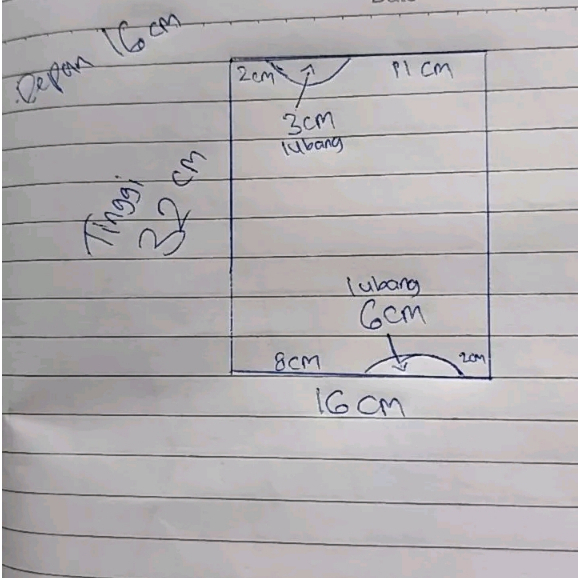 Depan 16cm
2cm
11 cm
3cm
lubang
Tinggi
32 cm
lubang
6cm
8cm
2cm
16cm